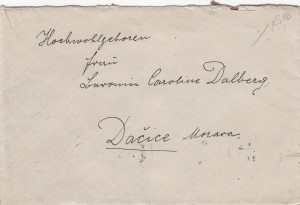 Hochwohlgeboren
Frau
Baronin Caroline Dalberg,
Dačice Morava.